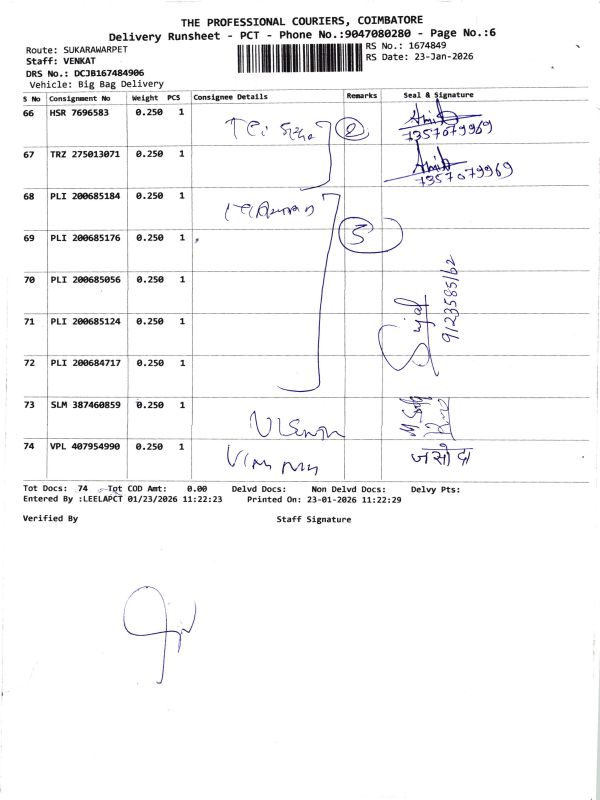 THE PROFESSIONAL COURIERS, COIMBATORE
Delivery Runsheet - PCT - Phone No.:9047080280 - Page No.:6
Route: SUKARAWARPET
RS No.: 1674849
Staff: VENKAT
RS Date: 23-Jan-2026
DRS No.: DCJB167484906
Vehicle: Big Bag Delivery
S No Consignment No Weight PCS Consignee Details Remarks Seal & Signature
66 HSR 7696583 0.250 1 2
7357079969
67 TRZ 275013071 0.250 1
7357079969
68 PLI 200685184 0.250 1
69 PLI 200685176 0.250 1 5
70 PLI 200685056 0.250 1
71 PLI 200685124 0.250 1
Sujal
9123585162
72 PLI 200684717 0.250 1
73 SLM 387460859 0.250 1
74 VPL 407954990 0.250 1 जसोदा
Tot Docs: 74 Tot COD Amt: 0.00 Delvd Docs: Non Delvd Docs: Delvy Pts:
Entered By :LEELAPCT 01/23/2026 11:22:23 Printed On: 23-01-2026 11:22:29
Verified By Staff Signature